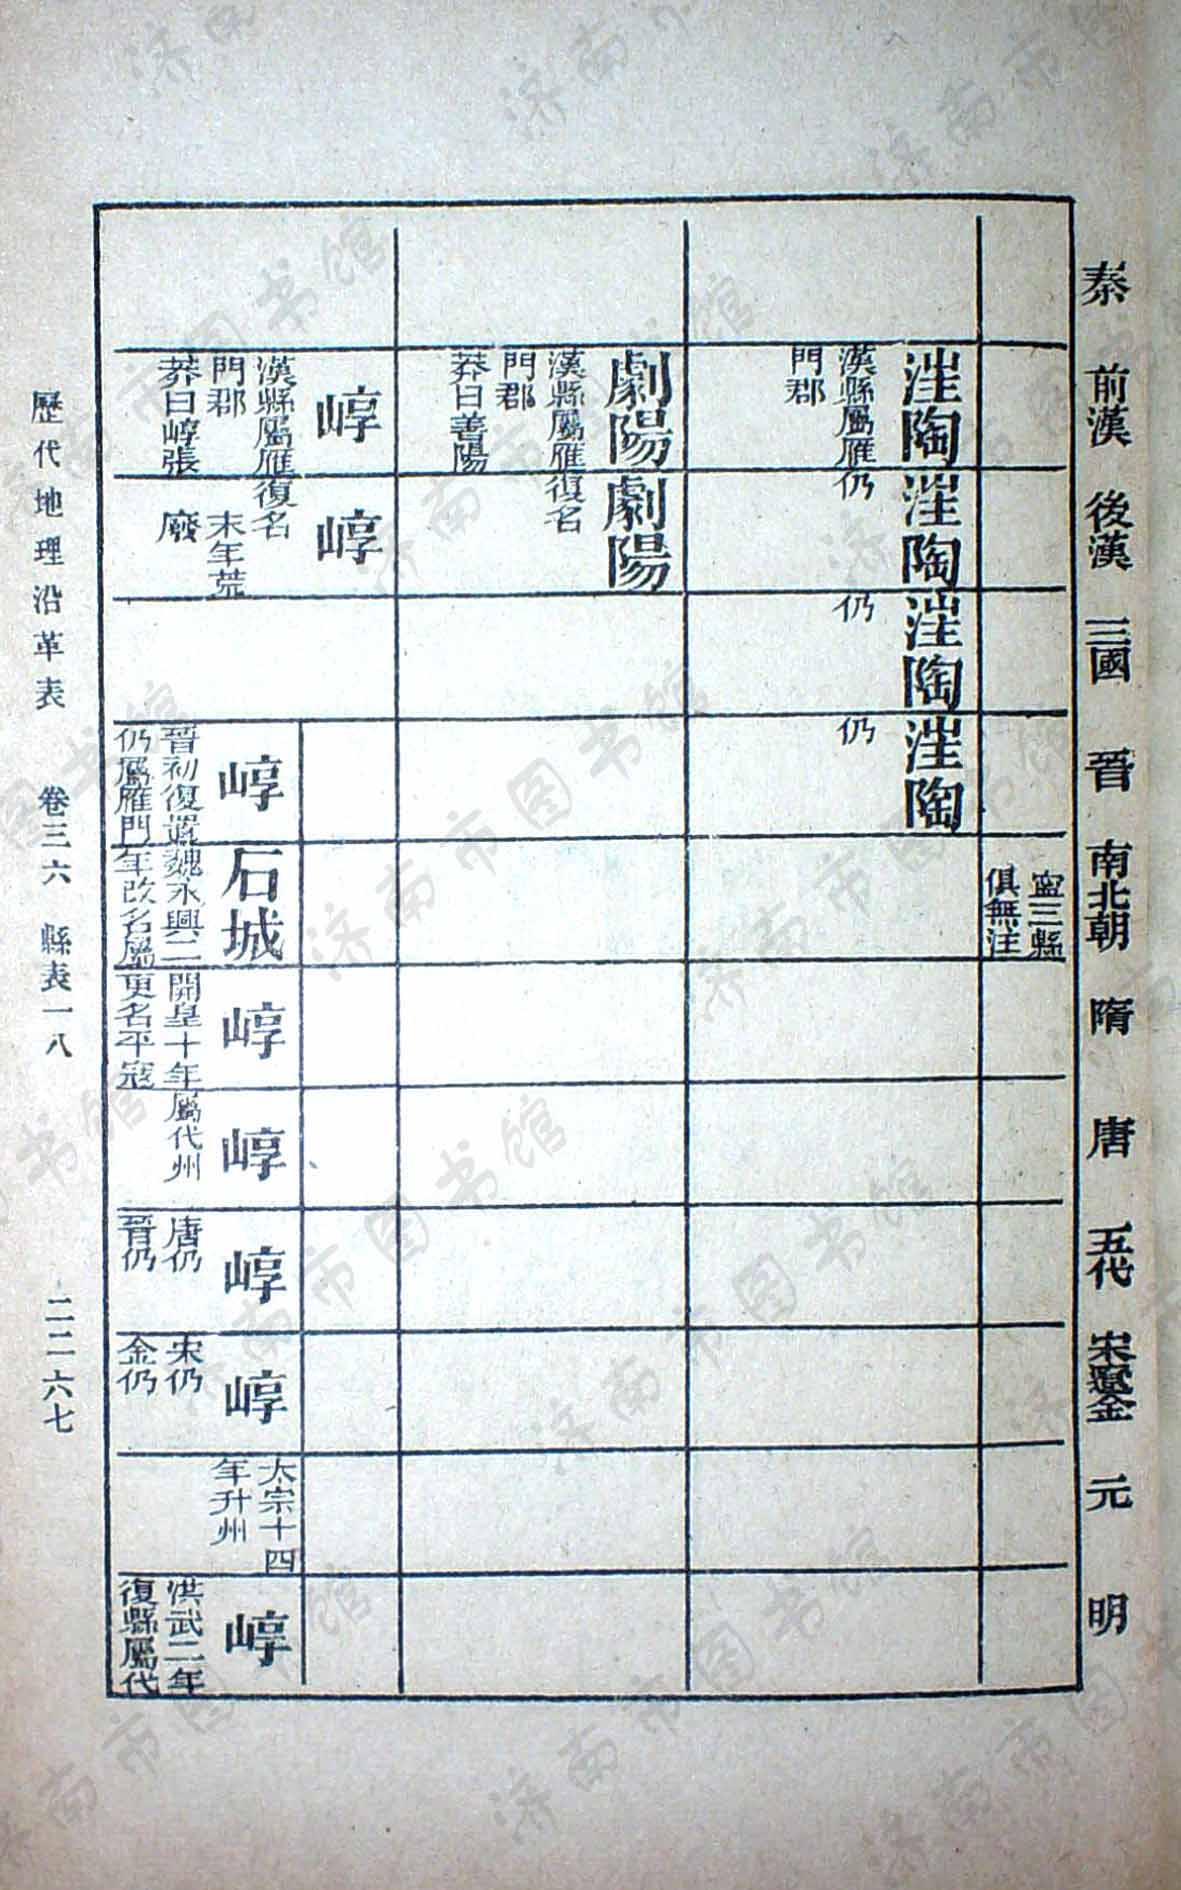 秦
前漢
後漢
三國
晉
南北朝
隋
唐
五代
宋遼金
元
明
寧三縣
俱無注
汪陶
漢縣屬雁
門郡
汪陶
仍
汪陶
仍
汪陶
仍
劇陽
漢縣屬雁
門郡
莽曰善陽
劇陽
復名
崞
漢縣屬雁
門郡
莽曰崞張
崞
復名
末年荒
廢
崞
晉初復置
仍屬雁門
石城
魏永興二
年改名屬
崞
開皇十年
更名平寇
崞
屬代州
崞
唐仍
晉仍
崞
宋仍
金仍
太宗十四
年升州
崞
洪武二年
復縣屬代
歷代地理沿革表 卷三六 縣表一八 二二六七
济南市图书馆